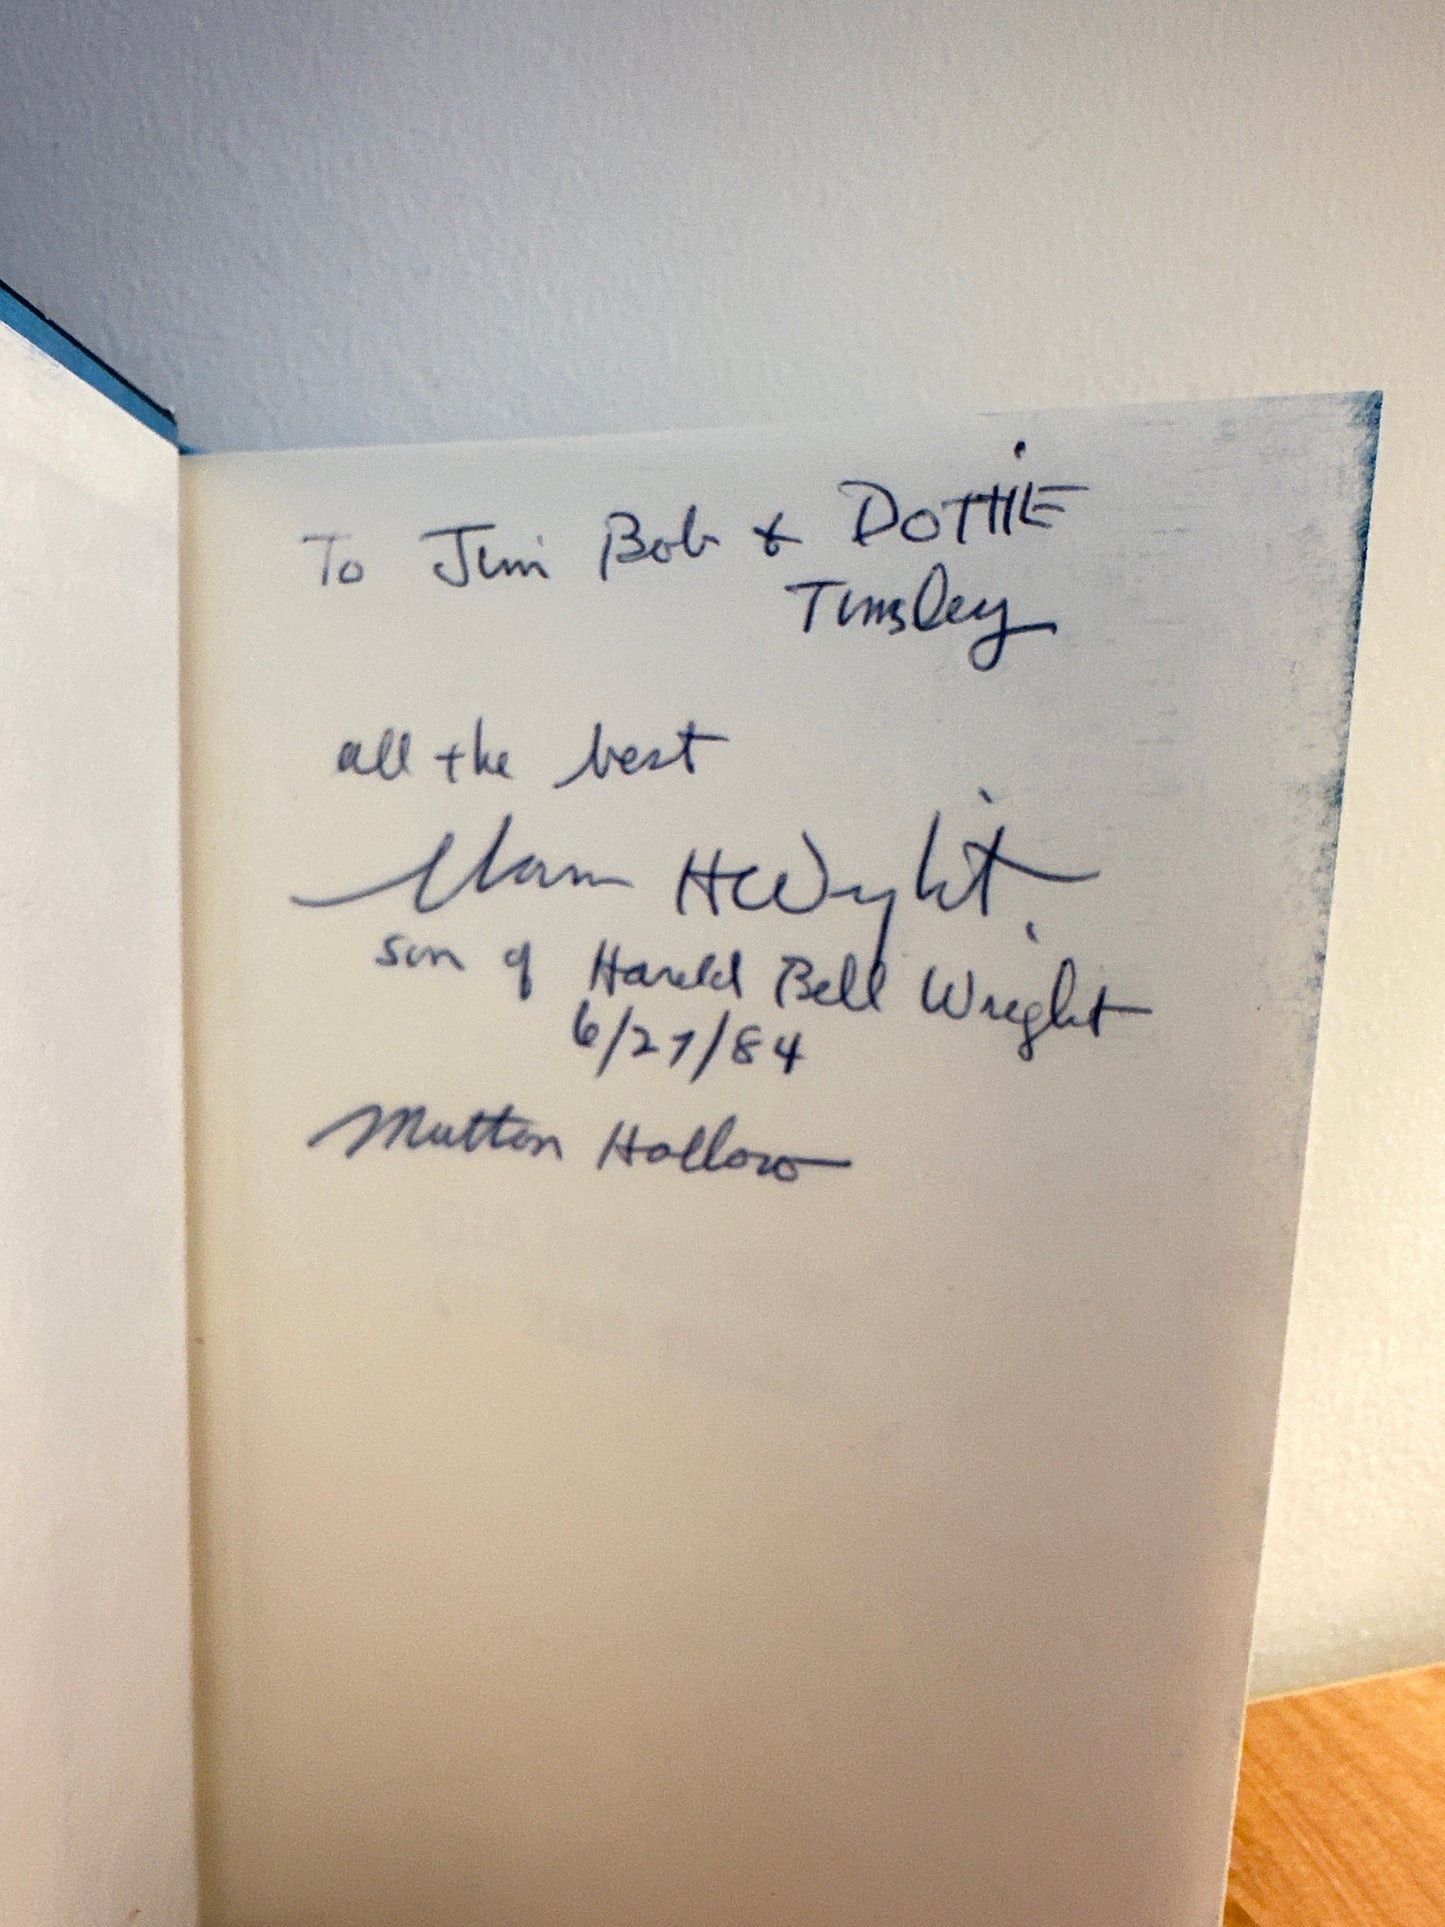 To Jim Bob & DOTTIE
Tinsley
all the best
Norman H Wright.
son of Harold Bell Wright
6/27/84
Mutton Hollow